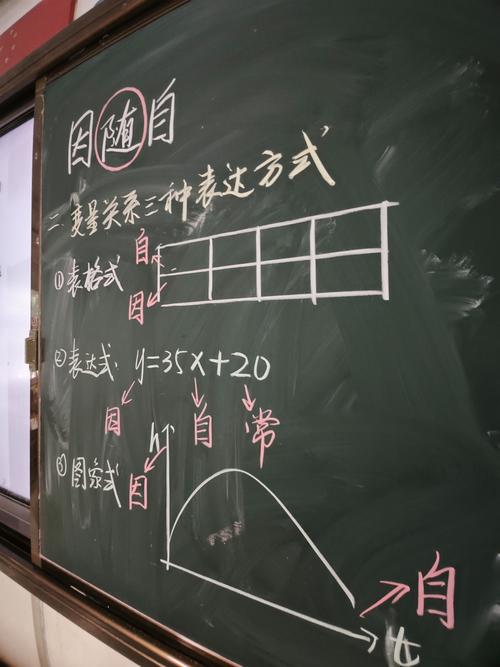 因随自
二.变量关系三种表达方式
自
①表格式
因
②表达式: y=35x+20
因 自 常
h
③图象式 因
自
t